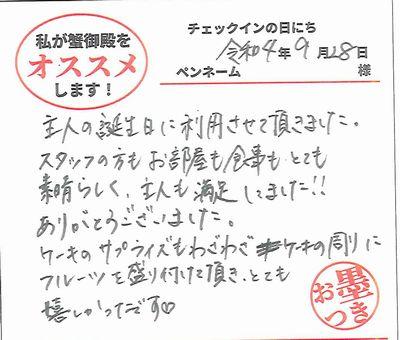 私が蟹御殿を
オススメ
します！
チェックインの日にち
令和4年9月28日
ペンネーム 様
主人の誕生日に利用させて頂きました。
スタッフの方もお部屋も食事もとても
素晴らしく、主人も満足してました!!
ありがとうございました。
ケーキのサプライズもわざわざケーキの周りに
フルーツを盛り付けて頂き、とても
嬉しかったです♡
お墨つき